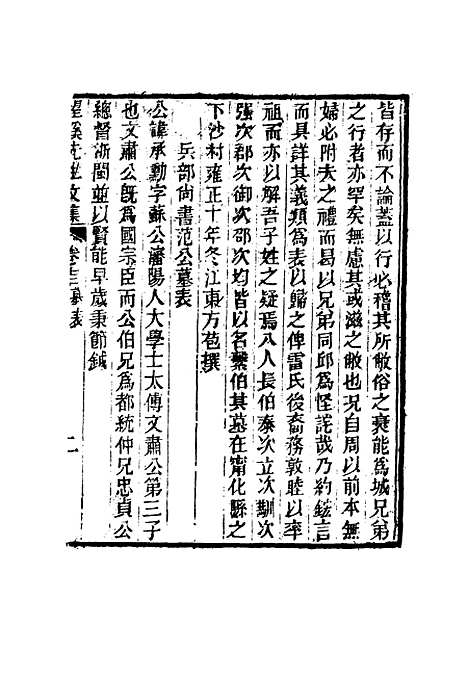 皆存而不論蓋以行必稽其所敝俗之衰能為城兄弟
之行者亦罕矣無慮其或滋之敝也況自周以前本無
婦必附夫之禮而易以兄弟同邱為怪詫哉乃約鋐言
而具詳其義類為表以歸之俾雷氏後裔務敦睦以率
祖而亦以解吾子姓之疑焉八人長伯泰次立次馴次
強次郡次御次邵次均皆以名繫伯其墓在甯化縣之
下沙村雍正十年冬江東方苞撰
兵部尚書范公墓表
公諱承勳字蘇公瀋陽人大學士太傅文肅公第三子
也文肅公既為國宗臣而公伯兄為都統仲兄忠貞公
總督浙閩並以賢能早歲秉節鉞
望溪先生文集 卷十三墓表 二